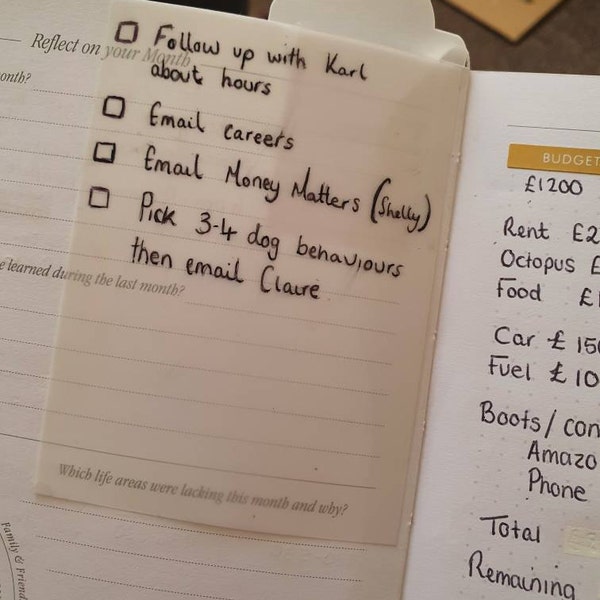 Reflect on your Month
onth?
☐ Follow up with Karl
about hours
☐ Email careers
☐ Email Money Matters (Shelly)
☐ Pick 3-4 dog behaviours
then email Claire
e learned during the last month?
Which life areas were lacking this month and why?
Family & Friend
BUDGET
£1200
Rent £2
Octopus £
Food £1
Car £ 150
Fuel £ 10
Boots/ con
Amazo
Phone
Total
Remaining